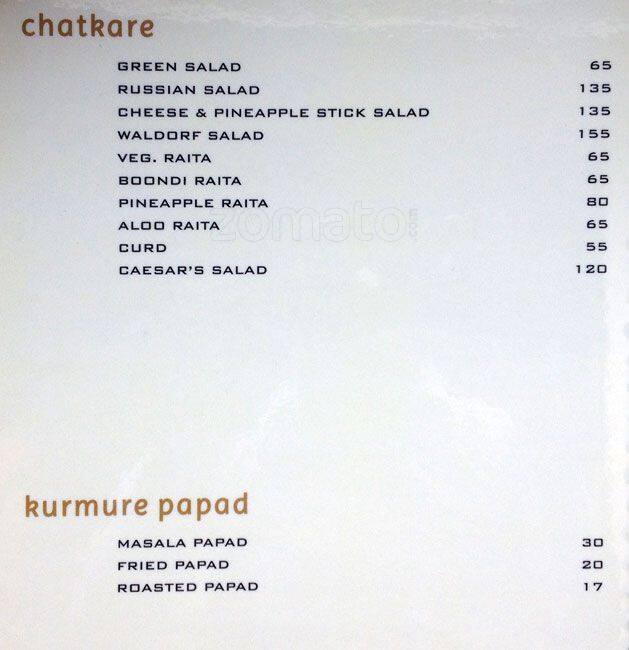 chatkare
GREEN SALAD 65
RUSSIAN SALAD 135
CHEESE & PINEAPPLE STICK SALAD 135
WALDORF SALAD 155
VEG. RAITA 65
BOONDI RAITA 65
PINEAPPLE RAITA 80
zomato.com
ALOO RAITA 65
CURD 55
CAESAR'S SALAD 120
kurmure papad
MASALA PAPAD 30
FRIED PAPAD 20
ROASTED PAPAD 17